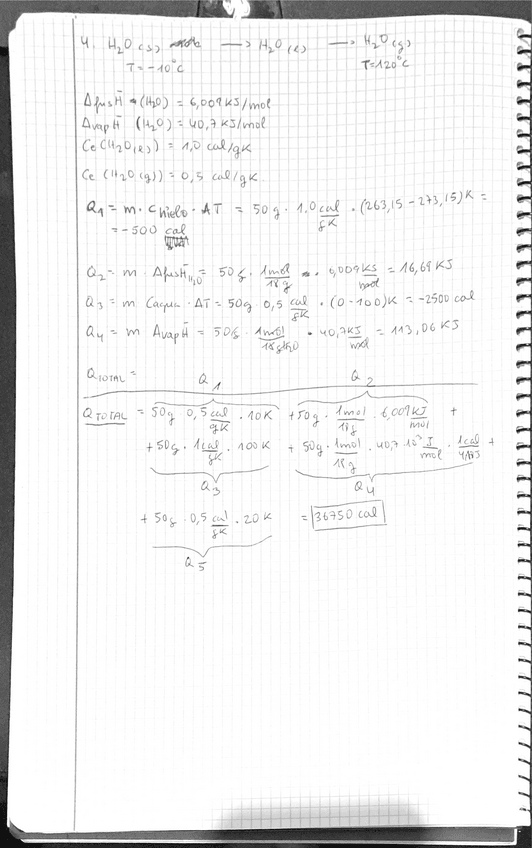 4. H₂O (s) ⟶ H₂O (l) ⟶ H₂O (g)
T = -10°C T=120°C
ΔfusH̄ (H₂O) = 6,009 KJ/mol
ΔvapH̄ (H₂O) = 40,7 KJ/mol
Ce (H₂O(l)) = 1,0 cal/gK
Ce (H₂O(g)) = 0,5 cal/gK
Q1 = m · Chielo · ΔT = 50 g · 1,0 cal/gK · (263,15 - 273,15)K =
= -500 cal
Q2 = m · ΔfusH̄ H₂O = 50 g · 1mol/18g · 6,009 KJ/mol = 16,69 KJ
Q3 = m Cagua · ΔT = 50g · 0,5 cal/gK · (0-100)K = -2500 cal
Q4 = m ΔvapH̄ = 50g · 1mol/18gH₂O · 40,7 KJ/mol = 113,06 KJ
QTOTAL =
Q1 Q2
QTOTAL = 50g 0,5 cal/gK · 10K + 50g · 1mol/18g · 6,009 KJ/mol +
+ 50g · 1cal/gK · 100K + 50g · 1mol/18g · 40,7 · 10³ J/mol · 1cal/4,18J +
Q3 Q4
+ 50g · 0,5 cal/gK · 20K = 36750 cal
Q5